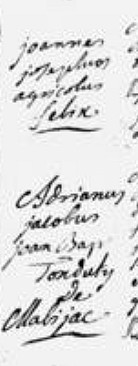 joannes
josephus
agricolus
felix
Adrianus
jacobus
jean Bap
Tonduty
De
Malijac